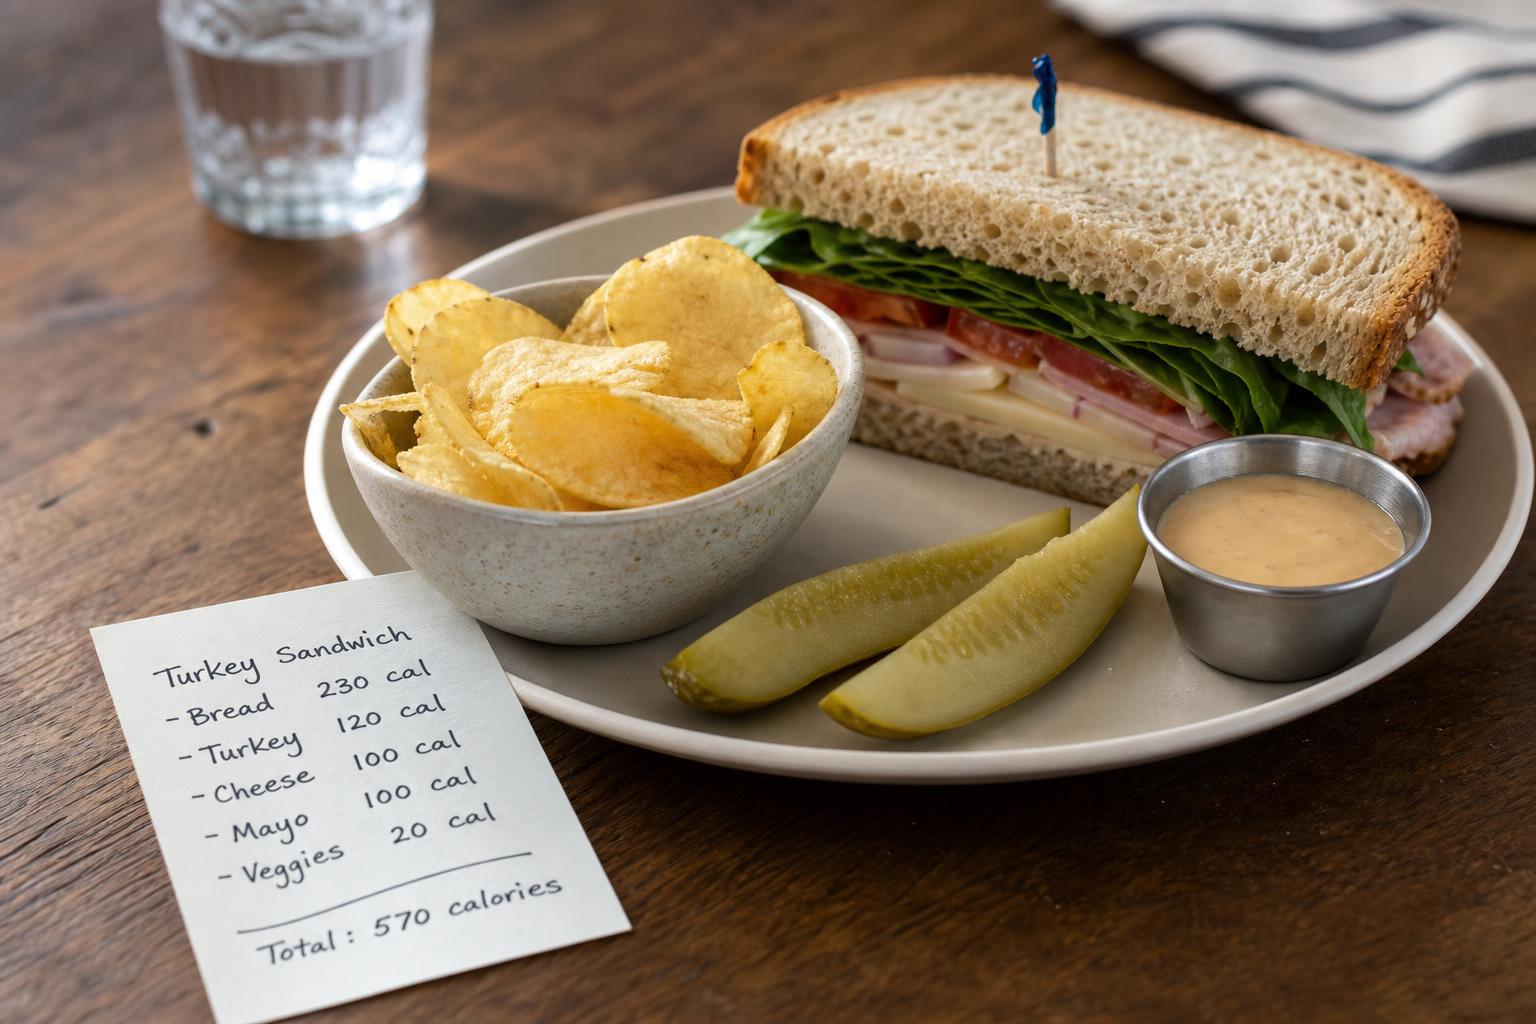 Turkey Sandwich
- Bread 230 cal
- Turkey 120 cal
- Cheese 100 cal
- Mayo 100 cal
- Veggies 20 cal
Total: 570 calories